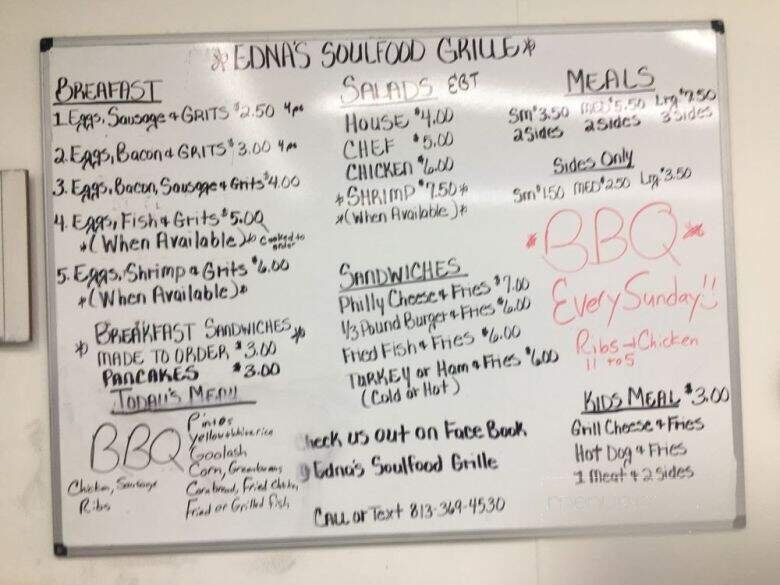 *EDNA'S SOULFOOD GRILLE*
BREAFAST
1. Eggs, Sausage + GRITS $2.50
2. Eggs, Bacon & GRITS $3.00
3. Eggs, Bacon, Sausage + Grits $4.00
4. Eggs, Fish + Grits $5.00
*(When Available)* cooked to order
5. Eggs, Shrimp & Grits $6.00
*(When Available)*
*BREAKFAST SANDWICHES*
MADE TO ORDER $3.00
PANCAKES $3.00
TODAY'S MENU
BBQ
Chicken, Sausage
Ribs
Pintos
Yellow + white rice
Goolash
Corn, Greenbeans
Cornbread, Fried Chicken,
Fried or Grilled fish
SALADS EBT
HOUSE $4.00
CHEF $5.00
CHICKEN $6.00
*SHRIMP $7.50*
*(When Available)*
SANDWICHES
Philly Cheese + Fries $7.00
1/3 Pound Burger + Fries $6.00
Fried Fish + Fries $6.00
TURKEY or Ham & Fries $6.00
(Cold or Hot)
heck us out on Face Book
Edna's Soulfood Grille
CALL or Text 813-369-4530
MEALS
Sm $3.50 MED $5.50 Lrg $7.50
2 Sides 2 Sides 3 Sides
Sides Only
Sm $1.50 MED $2.50 Lrg $3.50
*BBQ*
Every Sunday!!
Ribs + Chicken
11 to 5
KIDS MEAL $3.00
Grill Cheese + Fries
Hot Dog + Fries
1 Meat + 2 sides